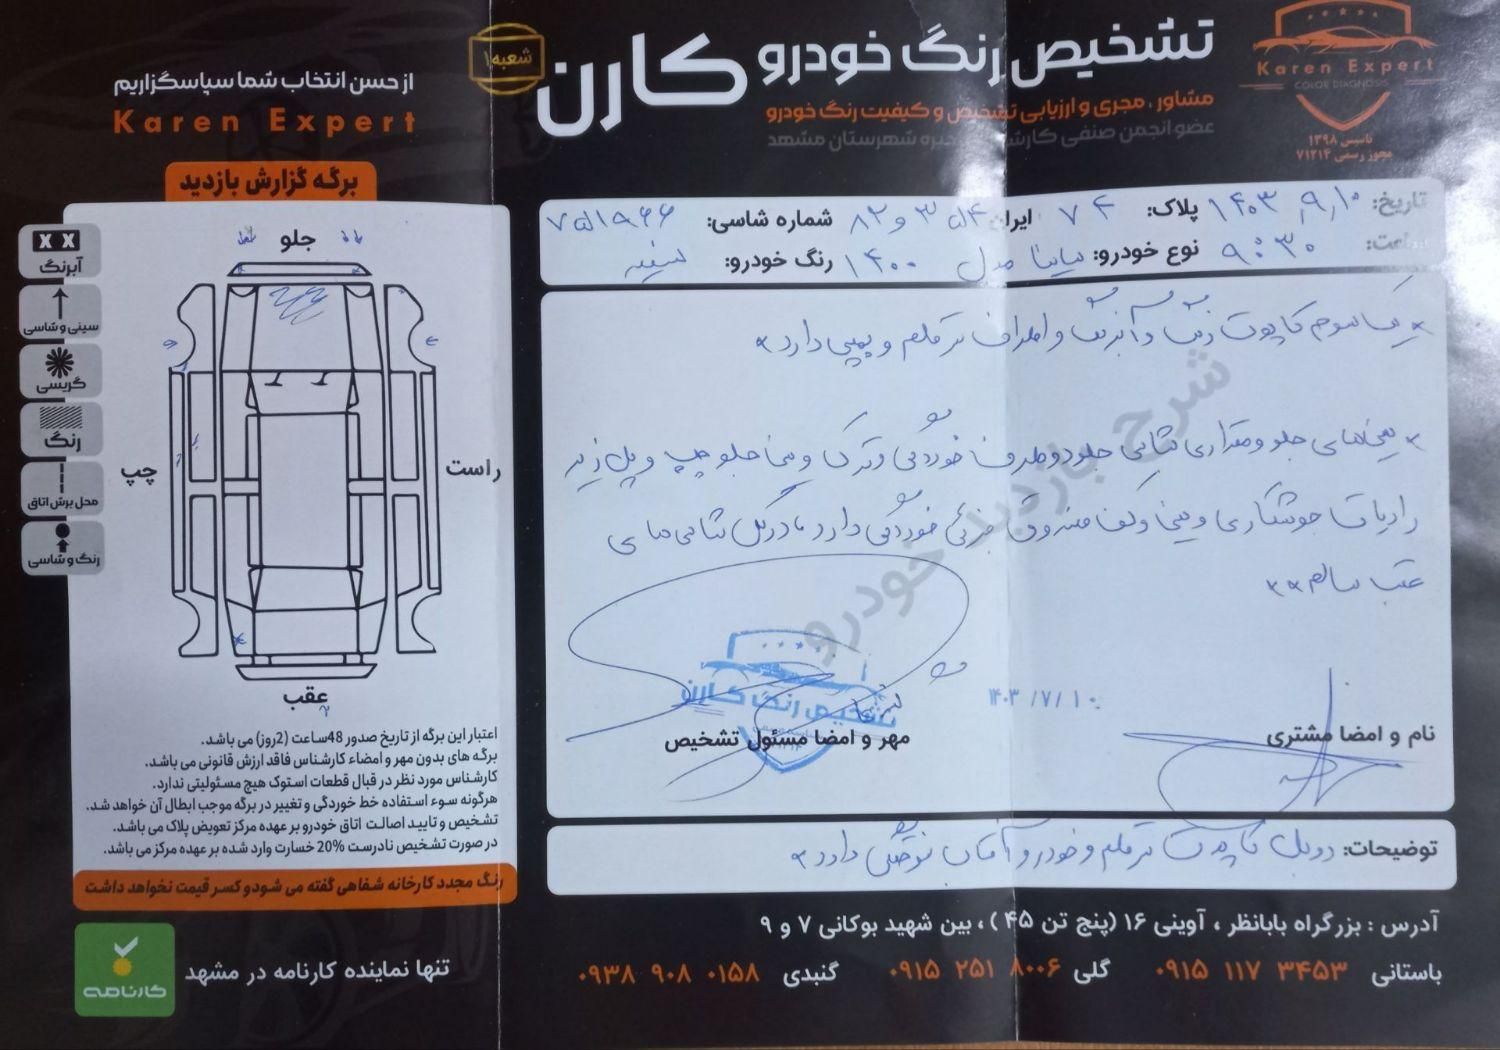 تشخیص رنگ خودرو کارن
شعبه ۱
مشاور، مجری و ارزیابی تشخیص و کیفیت رنگ خودرو
عضو انجمن صنفی خبره شهرستان مشهد
Karen Expert
COLOR DIAGNOSIS
تاسیس ۱۳۹۸
مجوز رسمی ۷۱۲۱۴
از حسن انتخاب شما سپاسگزاریم
Karen Expert
برگه گزارش بازدید
تاریخ: ۱۴۰۳/۹/۱۰ پلاک: ۷۴ ایران شماره شاسی: ۷۵۱۹۶۶
ساعت: ۹:۳۰ نوع خودرو: ساینا مدل ۱۴۰۰ رنگ خودرو: سفید
* یک سوم کاپوت رنگ و آبرنگ و اطراف ترمیم و دارد *
* جلو و مقداری شاسی جلو دو طرف خوردگی و ترک و جلو چپ و پل زیر
رادیات جوشکاری و سینی و کف صندوق جزئی خوردگی دارد مادرکل شاسی های
عقب سالم **
شرح بازدید خودرو
تشخیص رنگ کارن
۱۴۰۳/۷/۱۰
نام و امضا مشتری
مهر و امضا مسئول تشخیص
توضیحات: کاپوت ترمیم و خودرو آفتاب سوختگی دارد *
جلو
راست
چپ
عقب
X X
آبرنگ
سینی و شاسی
گریسی
رنگ
محل برش اتاق
رنگ و شاسی
اعتبار این برگه از تاریخ صدور 48ساعت (2روز) می باشد.
برگه های بدون مهر و امضاء کارشناس فاقد ارزش قانونی می باشد.
کارشناس مورد نظر در قبال قطعات استوک هیچ مسئولیتی ندارد.
هرگونه سوء استفاده خط خوردگی و تغییر در برگه موجب ابطال آن خواهد شد.
تشخیص و تایید اصالت اتاق خودرو بر عهده مرکز تعویض پلاک می باشد.
در صورت تشخیص نادرست 20% خسارت وارد شده بر عهده مرکز می باشد.
رنگ مجدد کارخانه شفاهی گفته می شود و کسر قیمت نخواهد داشت
کارنامه
تنها نماینده کارنامه در مشهد
آدرس : بزرگراه بابانظر ، آوینی ۱۶ (پنج تن ۴۵) ، بین شهید بوکانی ۷ و ۹
باستانی ۰۹۱۵ ۱۱۷ ۳۴۵۳ گلی ۰۹۱۵ ۲۵۱ ۸۰۰۶ گنبدی ۰۹۳۸ ۹۰۸ ۰۱۵۸